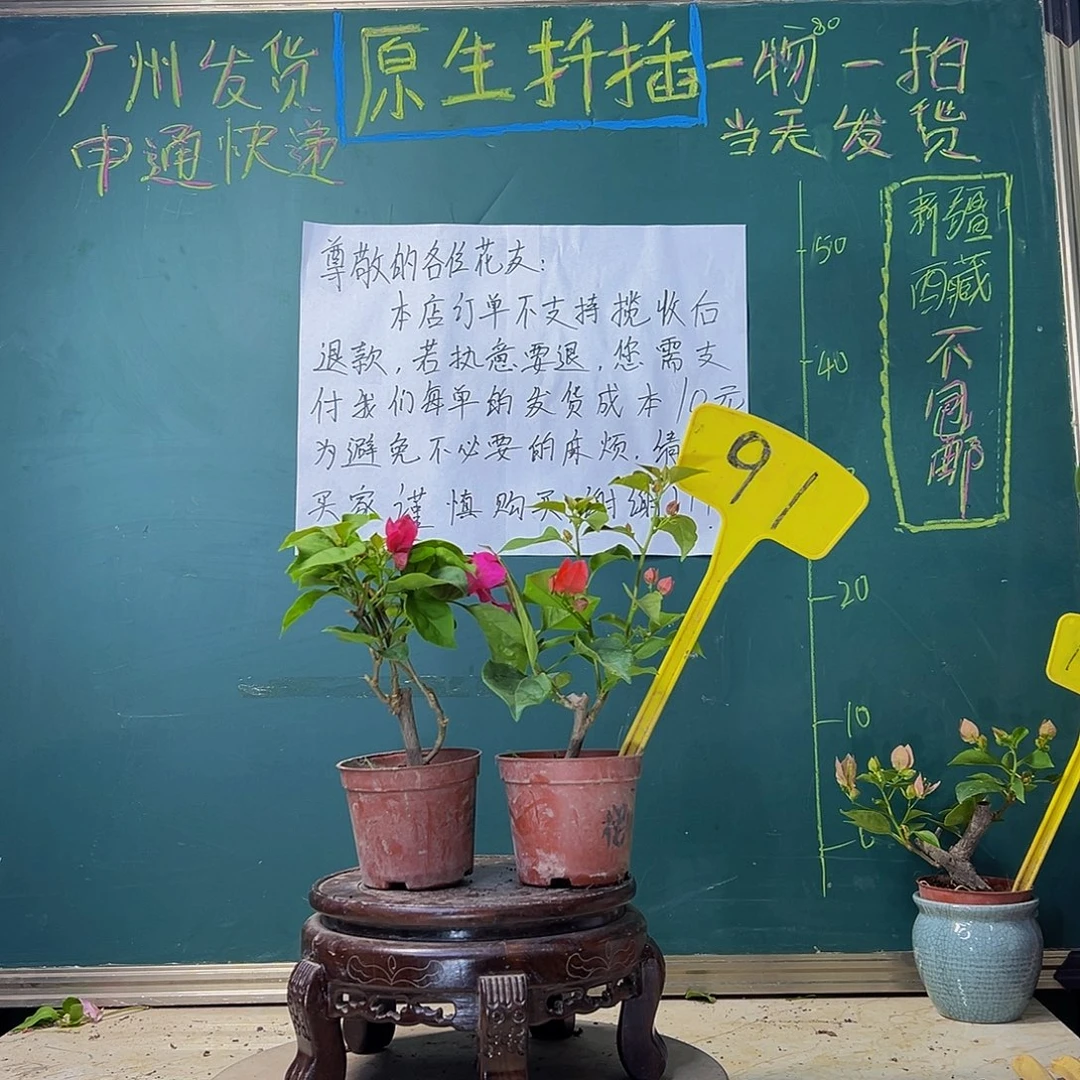 广州发货
申通快递
原生扦插
一物一拍
80
当天发货
新疆
西藏
不包邮
尊敬的各位花友:
本店订单不支持揽收后
退款,若执意要退,您需支
付我们每单的发货成本10元
为避免不必要的麻烦,请
买家谨慎购买谢谢!!
91
50
40
20
10
0
花